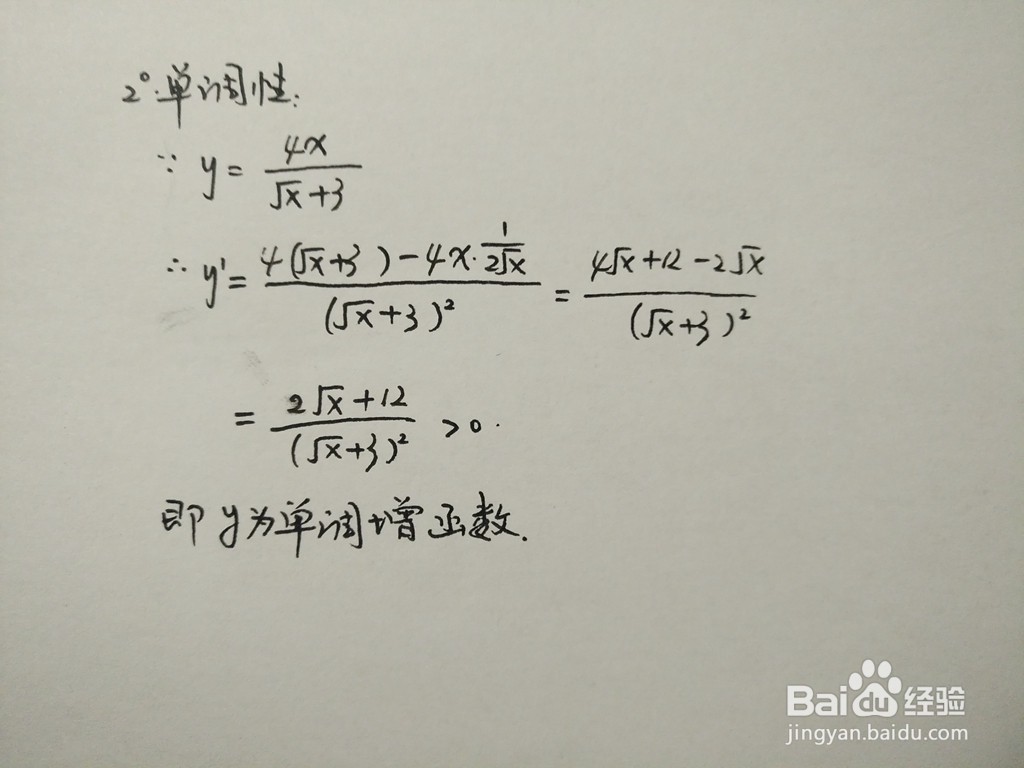 2°.单调性:
∵ y = 4x / (√x+3)
∴ y' = [4(√x+3)-4x·1/(2√x)] / (√x+3)² = (4√x+12-2√x) / (√x+3)²
= (2√x+12) / (√x+3)² >0.
即y为单调增函数.
Baidu经验
jingyan.baidu.com